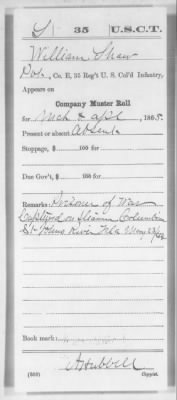 S 35 U.S.C.T.
William Shaw
Pvt., Co. E, 35 Reg't U. S. Col'd Infantry,
Appears on
Company Muster Roll
for Mch & Apl, 1865.
Present or absent Absent
Stoppage, $ 100 for
Due Gov't, $ 100 for
Remarks: Prisoner of War
Captured on Steamer Columbine
St Johns River Fla May 23/64
Book mark:
A Hubbell
(359) Copyist.